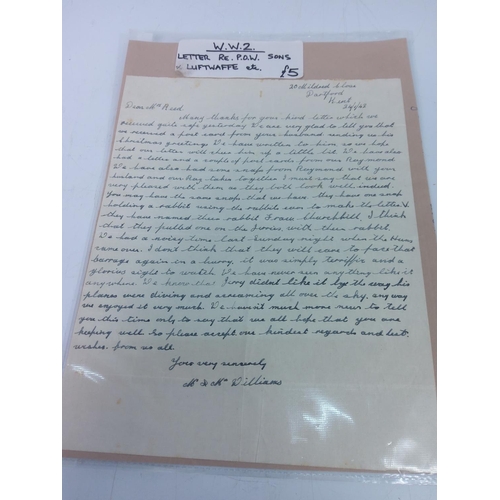 W.W.2.
LETTER RE. P.O.W. SONS
& LUFTWAFFE etc. £5
20 Mildred Close
Dartford
Kent
Dear Mrs Reed.
Many thanks for your kind letter which we
received quite safe yesterday We are very glad to tell you that
we received a post card from your husband sending us his
Christmas greetings We have written to him so we hope
that our letter will cheer him up a little bit. We have also
had a letter and a couple of post cards from our Raymond.
We have also had some snaps from Raymond with your
husband and our Ray taken together I must say that we are
very pleased with them as they both look well indeed.
You may have the same snap that we have. they have one snap
holding a rabbit using the rabbits ears to make the letter V
they have named their rabbit Frau Churchill, I think
that they pulled one on the Jerries with their rabbit.
We had a noisy time last Sunday night when the Huns
came over. I dont think that they will want to face that
barrage again in a hurry, it was simply terrific and a
glorious sight to watch We have never seen anything like it
anywhere. We know that Jerry didnt like it by the way his
planes were diving and screaming all over the sky, any way
we enjoyed it very much. We havent much more news to tell
you this time only to say that we all hope that you are
keeping well so please accept our kindest regards and best
wishes from us all.
Yours very sincerely
Mr & Mrs Williams